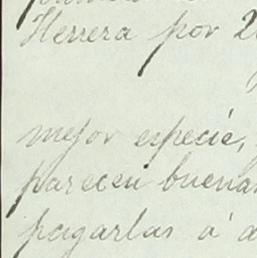 Herrera por 2
mejor especie,
parecen buenas
pagarlas á a